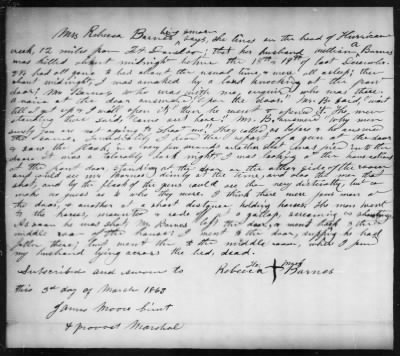 Mrs Rebecca Barnes being sworn says, she lives on the head of Hurricane
creek, 12 miles from Ft Donelson; that her husband William Barnes
was killed about midnight between the 18th & 19th of last December.
We had all gone to bed about the usual time, & were all asleep; then
about midnight, I was awaked by a loud knocking at the front
door; Mr Barnes who was with me, enquired who was there.
A voice at the door answered, "open the door." Mr B. said, wait
till I get up & I will open it; & then he went & opened it. The men
standing there said, "Come out here." Mr B. answered why
are you going to shoot me? They called as before & he
Immediately I heard the report of a gun at the door
& saw the flash, in a few seconds another shot was fired into the
door. It was a tolerably dark night. I was looking at the
at the front door, standing at the door on the other side of the room
and could see no man plainly at the time, and the gun that
shot, and by the flash of the guns could see him very distinctly but
make no question as to who they were. I think there were four men at
the door, & another at a short distance holding horses. The men went
to the horses, mounted & rode off at a gallop, screaming as
As soon as was shot, Mr Barnes left the door, & went back to the
middle room of the house; I went to the door, supposing he had
fallen there; but went then to the middle room, where I found
my husband lying across the bed, dead.
Subscribed and sworn to
Rebecca her mark Barnes
this 3rd day of March 1863
James Moore Lieut
& provost Marshal